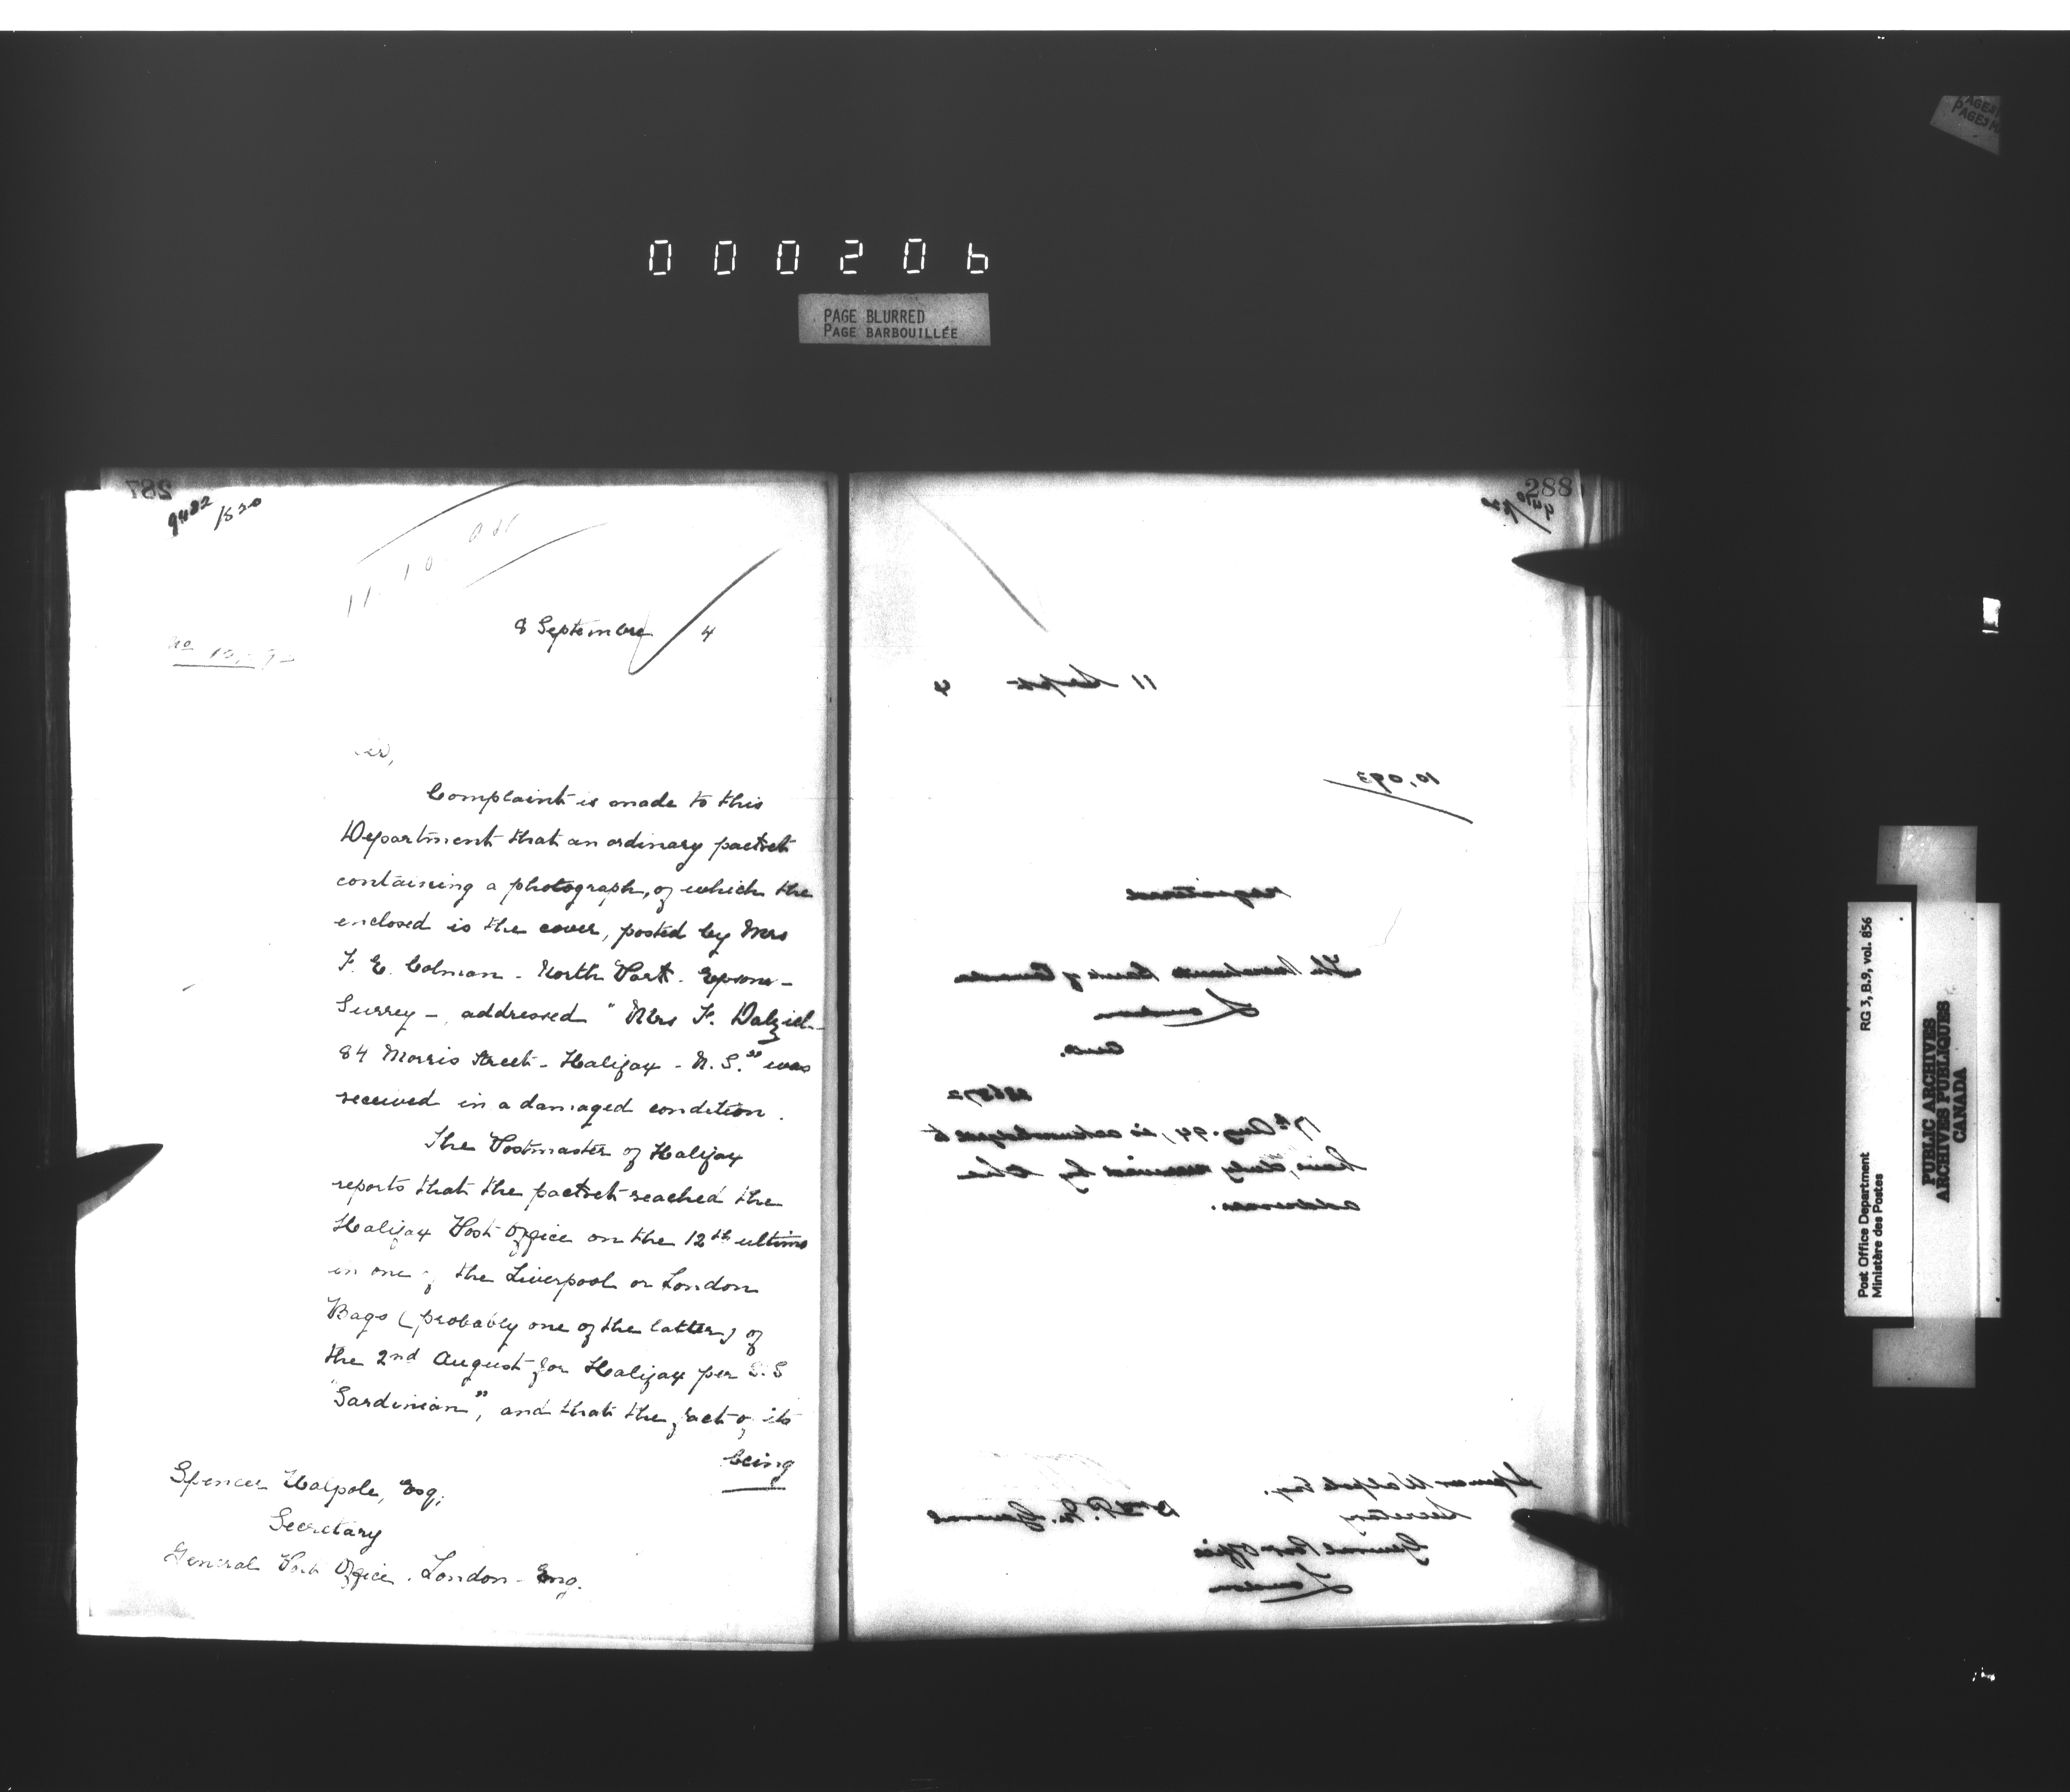 000206
PAGE BLURRED
PAGE BARBOUILLÉE
287
9482/520
8 September 4
Sir,
Complaint is made to this
Department that an ordinary packet
containing a photograph, of which the
enclosed is the cover, posted by Mrs
F. E. Colman - North Park - Epsom -
Surrey -, addressed "Mrs F. Dalziel -
84 Morris Street - Halifax - N. S." was
received in a damaged condition.
The Postmaster of Halifax
reports that the packet reached the
Halifax Post Office on the 12th ultimo
in one of the Liverpool or London
Bags (probably one of the latter) of
the 2nd August for Halifax per S.S
"Sardinian", and that the fact of its
being
Spencer Walpole, Esq;
Secretary
General Post Office. London - Eng.
288
11 Sept 4
10,093
registered
The Merchants Bank of Canada
London
Ont.
7th Aug. 94, is acknowledged to
have duly received by the
addressee.
Spencer Walpole Esq.
Secretary
General Post Office
London
D. P. M. General
Post Office Department RG 3, B.9, vol. 856
Ministère des Postes
PUBLIC ARCHIVES
ARCHIVES PUBLIQUES
CANADA